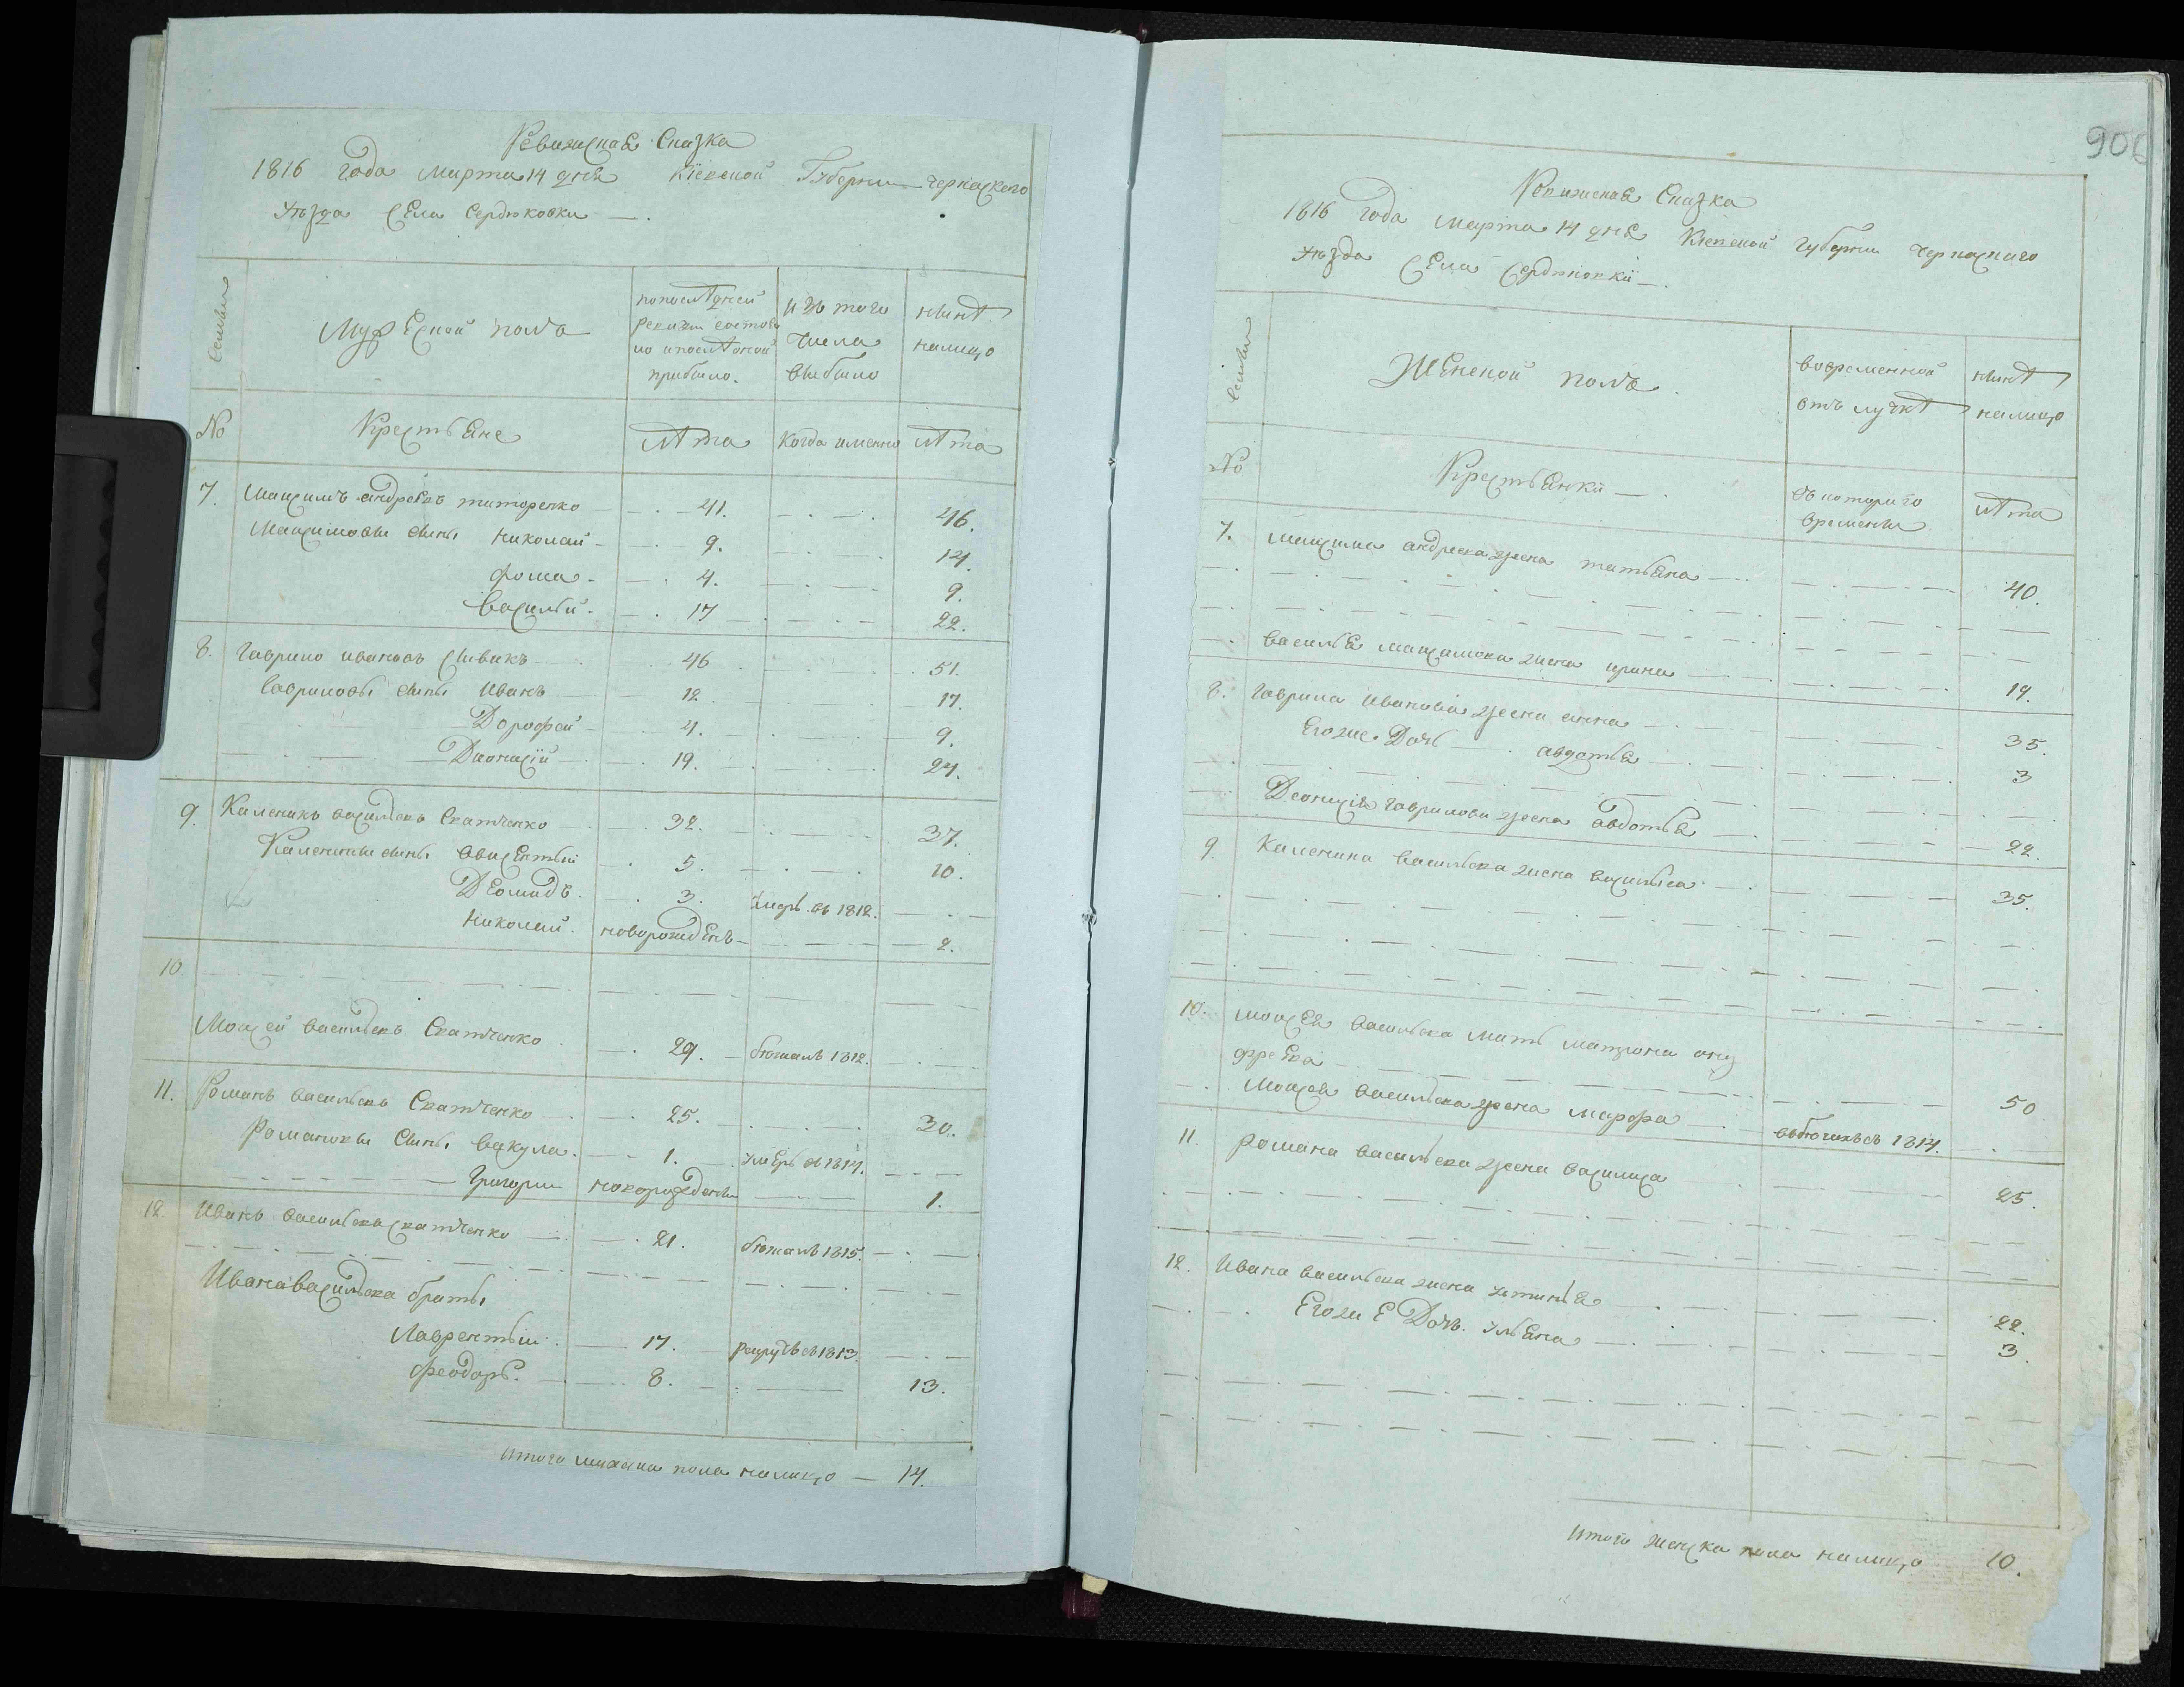 Ревижская Сказка
1816 года марта 14 дня Кіевской Губернии Черкаского
уезда Села Сердюковки
семьи
Мужеской полъ
по последней ревизии состояло и после оной прибыло.
изъ того числа выбыло
ныне налицо
No
Крестьяне
лета
Когда именно
лета
7. Максимъ андреевъ титоренко 41. 46.
Максимовы сыны Николай 9. 14.
фома 4. 9.
василий 17 22.
8. Гаврило ивановъ 46 51.
Гавриловы сыны Иванъ 12 17.
Дорофей 4. 9.
Дионисій 19. 24.
9. Каленикъ васильевъ Скатченко 32. 37.
Калениковы сыны Авксентый 5. 10.
Деомидъ. 3. умре въ 1812.
Николай. новорожденъ 2.
10
Моисей васильевъ Скатченко 29. бежалъ 1812.
11. Романъ васильевъ Скатченко 25. 30.
Романовы Сыны Вакула. 1. умеръ въ 1814.
Григории новорожденны 1.
12. Иванъ васильевъ скатченко 21. бежалъ 1815.
Ивана васильева браты
Лаврентьи 17. рекрутъ в 1813.
Феодоръ. 8. 13.
Итого мужска пола налицо — 14.
906
Ревижская Сказка
1816 года Марта 14 дня Кіевской губернии Черкаскаго
уезда Села Сердюковки
семьи
Женской полъ
во временной отлучке
ныне налицо
No
Крестьянки
съ котораго времени
лета
7. максима андреева жена татьяна 40.
василья максимова жена ирина 19.
8. гаврила иванова жена анна 35.
Егоже Дочь авдотья 3
Деонисія гаврилова жена авдотья 22.
9. Каленика васильева жена василиса 35.
10. моисея васильева мать матрона
50
Моисея васильева жена марфа 1814.
11. романа васильева жена василиса 25.
12. Ивана васильева жена устинья 22.
Егоже Дочь. ульяна 3.
Итого женска пола налицо 10.